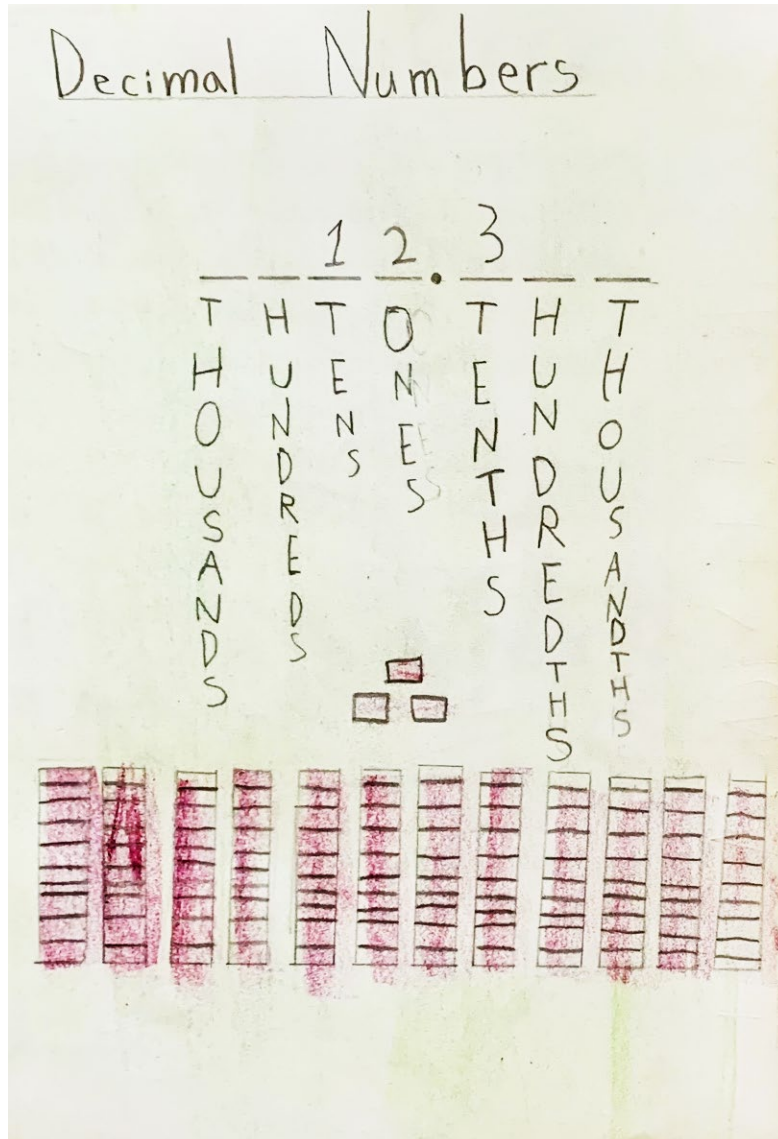 Decimal Numbers
1 2 . 3
THOUSANDS
HUNDREDS
TENS
ONES
TENTHS
HUNDREDTHS
THOUSANDTHS